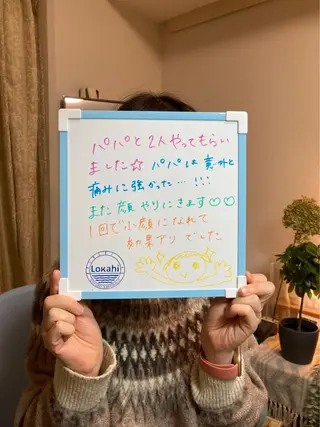 パパと2人やってもらい
ました☆ パパは意外と
痛みに強かった…!!!
また顔やりにきます♡♡
1回で小顔になれて
効果アリでした
Lokahi